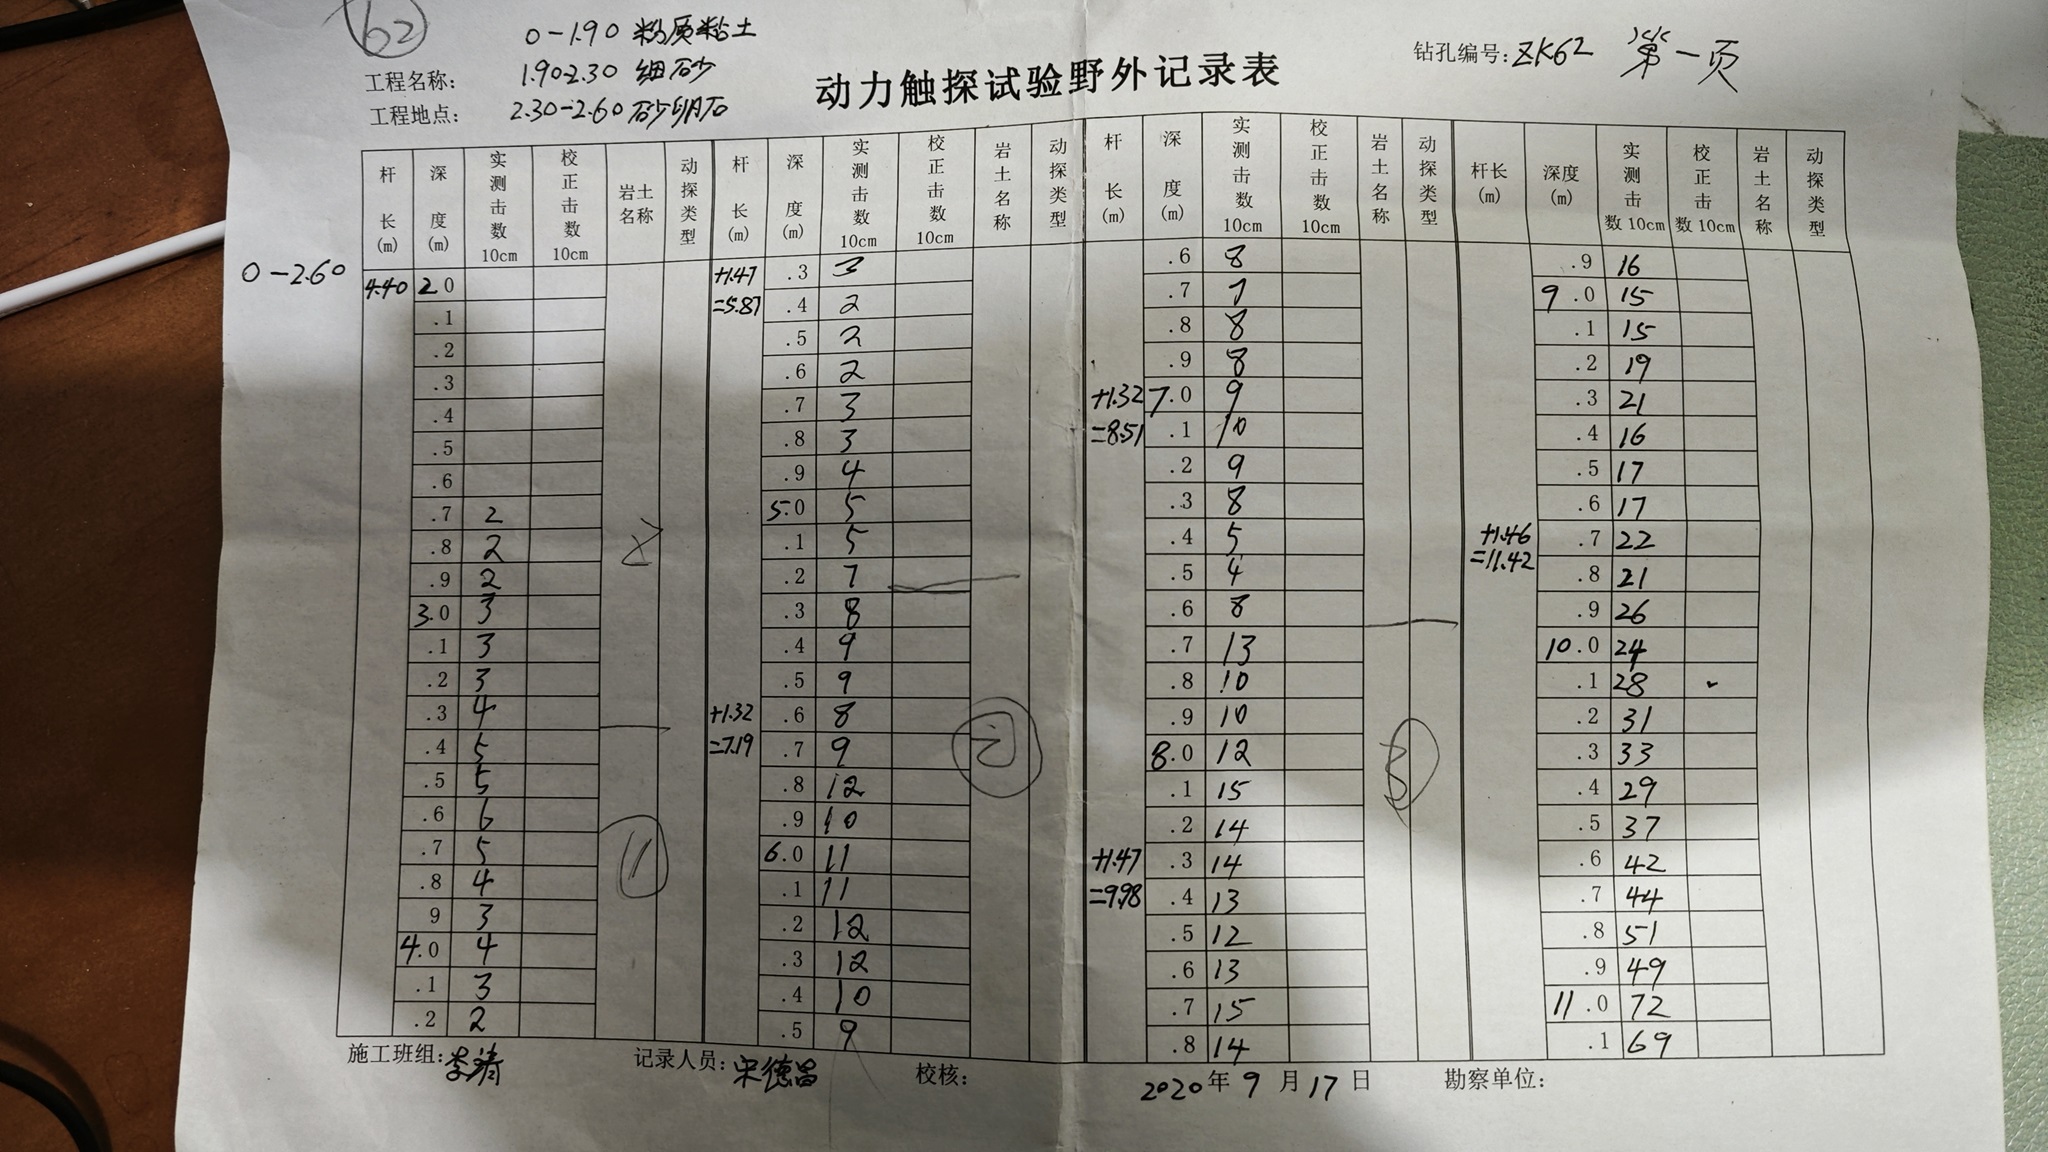 62
0-1.90 粉质粘土
工程名称: 1.90-2.30 细砂
工程地点: 2.30-2.60 砂卵石
动力触探试验野外记录表
钻孔编号:ZK62 第一页
杆长(m) 深度(m) 实测击数10cm 校正击数10cm 岩土名称 动探类型 杆长(m) 深度(m) 实测击数10cm 校正击数10cm 岩土名称 动探类型 杆长(m) 深度(m) 实测击数10cm 校正击数10cm 岩土名称 动探类型 杆长(m) 深度(m) 实测击数10cm 校正击数10cm 岩土名称 动探类型
0-2.60 4.40 2.0 +1.47 .3 3 .6 8 .9 16
.1 =5.87 .4 2 .7 7 9.0 15
.2 .5 2 .8 8 .1 15
.3 .6 2 .9 8 .2 19
.4 .7 3 +1.32 7.0 9 .3 21
.5 .8 3 =8.51 .1 10 .4 16
.6 .9 4 .2 9 .5 17
.7 2 5.0 5 .3 8 .6 17
.8 2 .1 5 .4 5 +1.46 .7 22
.9 2 .2 7 .5 4 =11.42 .8 21
3.0 3 .3 8 .6 8 .9 26
.1 3 .4 9 .7 13 10.0 24
.2 3 .5 9 .8 10 .1 28
.3 4 +1.32 .6 8 .9 10 .2 31
.4 5 =7.19 .7 9 8.0 12 .3 33
.5 5 .8 12 .1 15 .4 29
.6 6 .9 10 .2 14 .5 37
.7 5 6.0 11 +1.47 .3 14 .6 42
.8 4 .1 11 =9.98 .4 13 .7 44
9 3 .2 12 .5 12 .8 51
4.0 4 .3 12 .6 13 .9 49
.1 3 .4 10 .7 15 11.0 72
.2 2 .5 9 .8 14 .1 69
施工班组:李涛 记录人员:宋德昌 校核: 2020年9月17日 勘察单位: